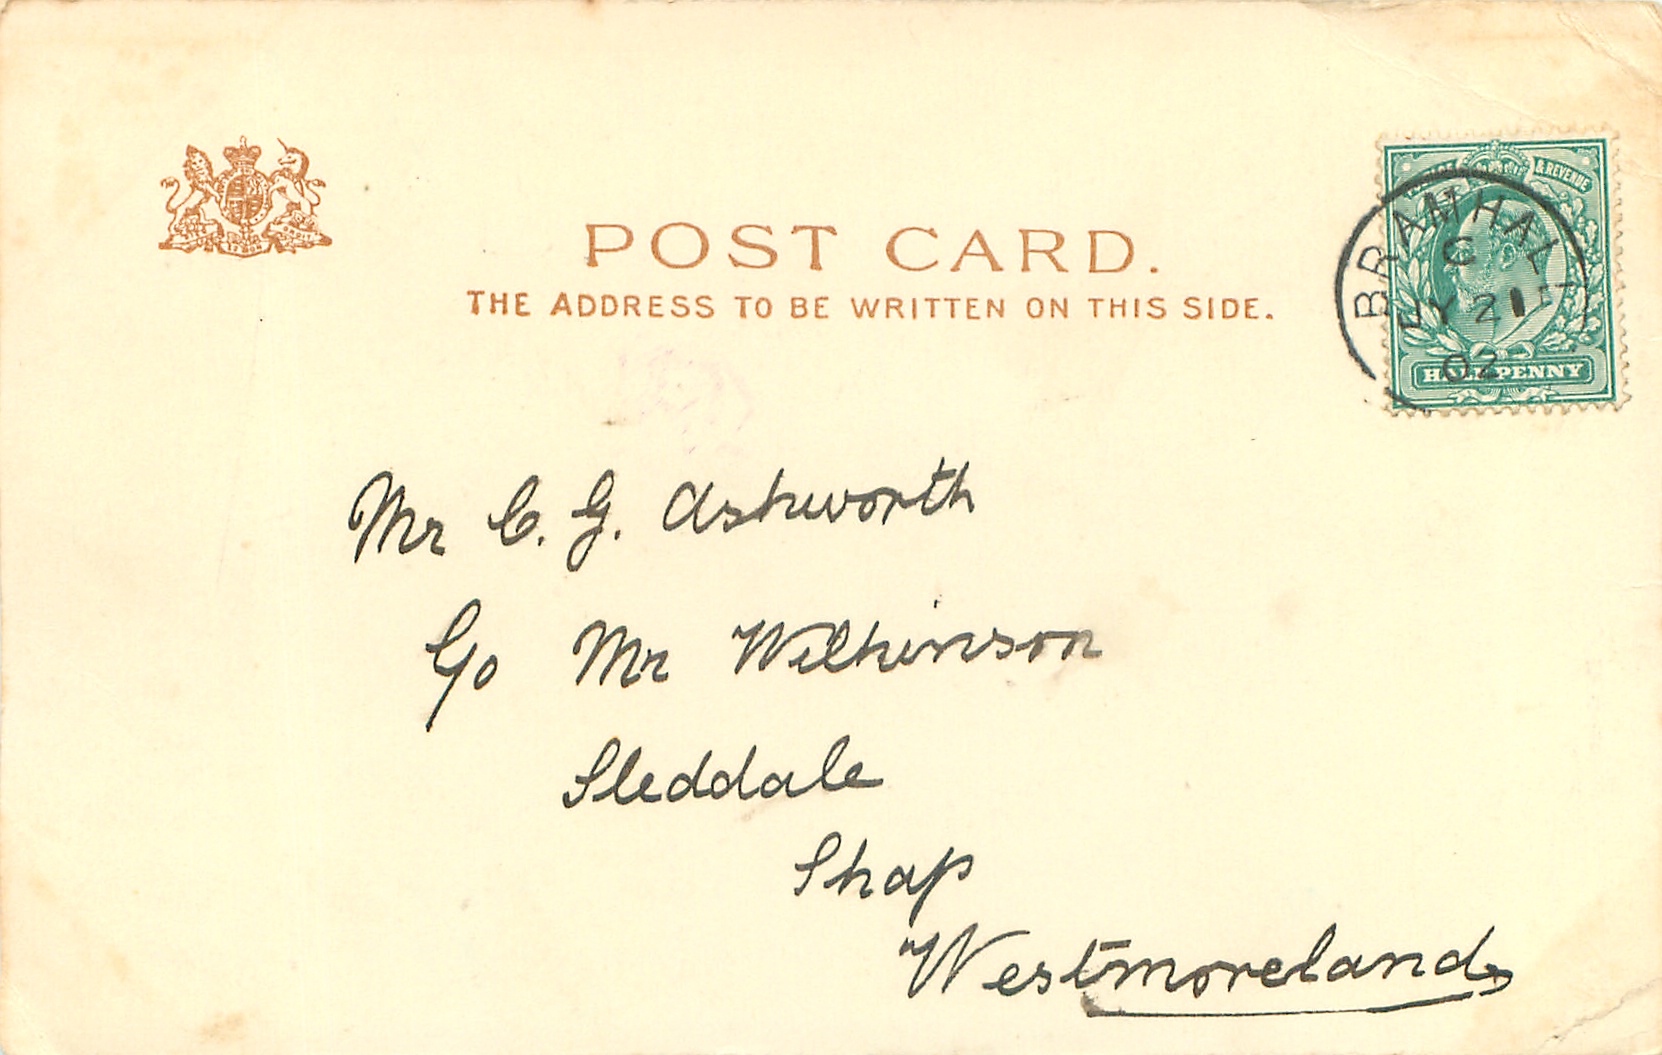 POST CARD.
THE ADDRESS TO BE WRITTEN ON THIS SIDE.
& REVENUE
BRAMHALL
C
JY 21
02
HALFPENNY
Mr C. G. Ashworth
C/o Mr Wilkinson
Sleddale
Shap
Westmoreland